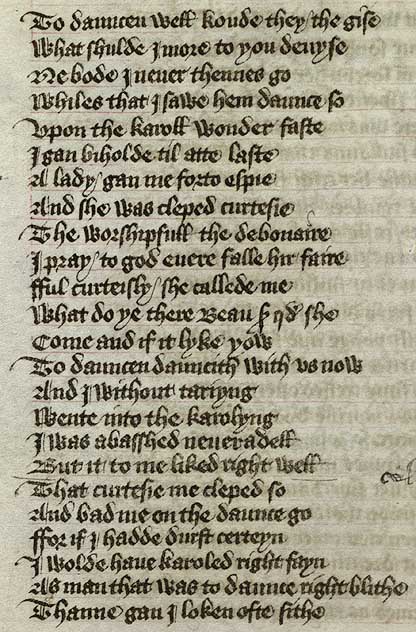 To dauncen well koude they / the gise
What shulde I more to you deuyse
Ne bode I neuer thennes go
Whiles that I sawe hem daunce so
Vpon the karoll wonder faste
I gan biholde til atte laste
A lady / gan me forto espie
And she was cleped curtesie
The worshipfull the debonaire
I pray / to god euere falle hir faire
fful curteisly / she callede me
What do ye there Beau sr qd she
Come and if it lyke yow
To dauncen daunceth with vs now
And I without tariyng
Wente into the karolyng
I was abasshed neueradell
But it to me liked right well
That curtesie me cleped so
And bad me on the daunce go
ffor if I hadde durst certeyn
I wolde haue karoled right fayn
As man that was to daunce right blithe
Thanne gan I loken ofte sithe